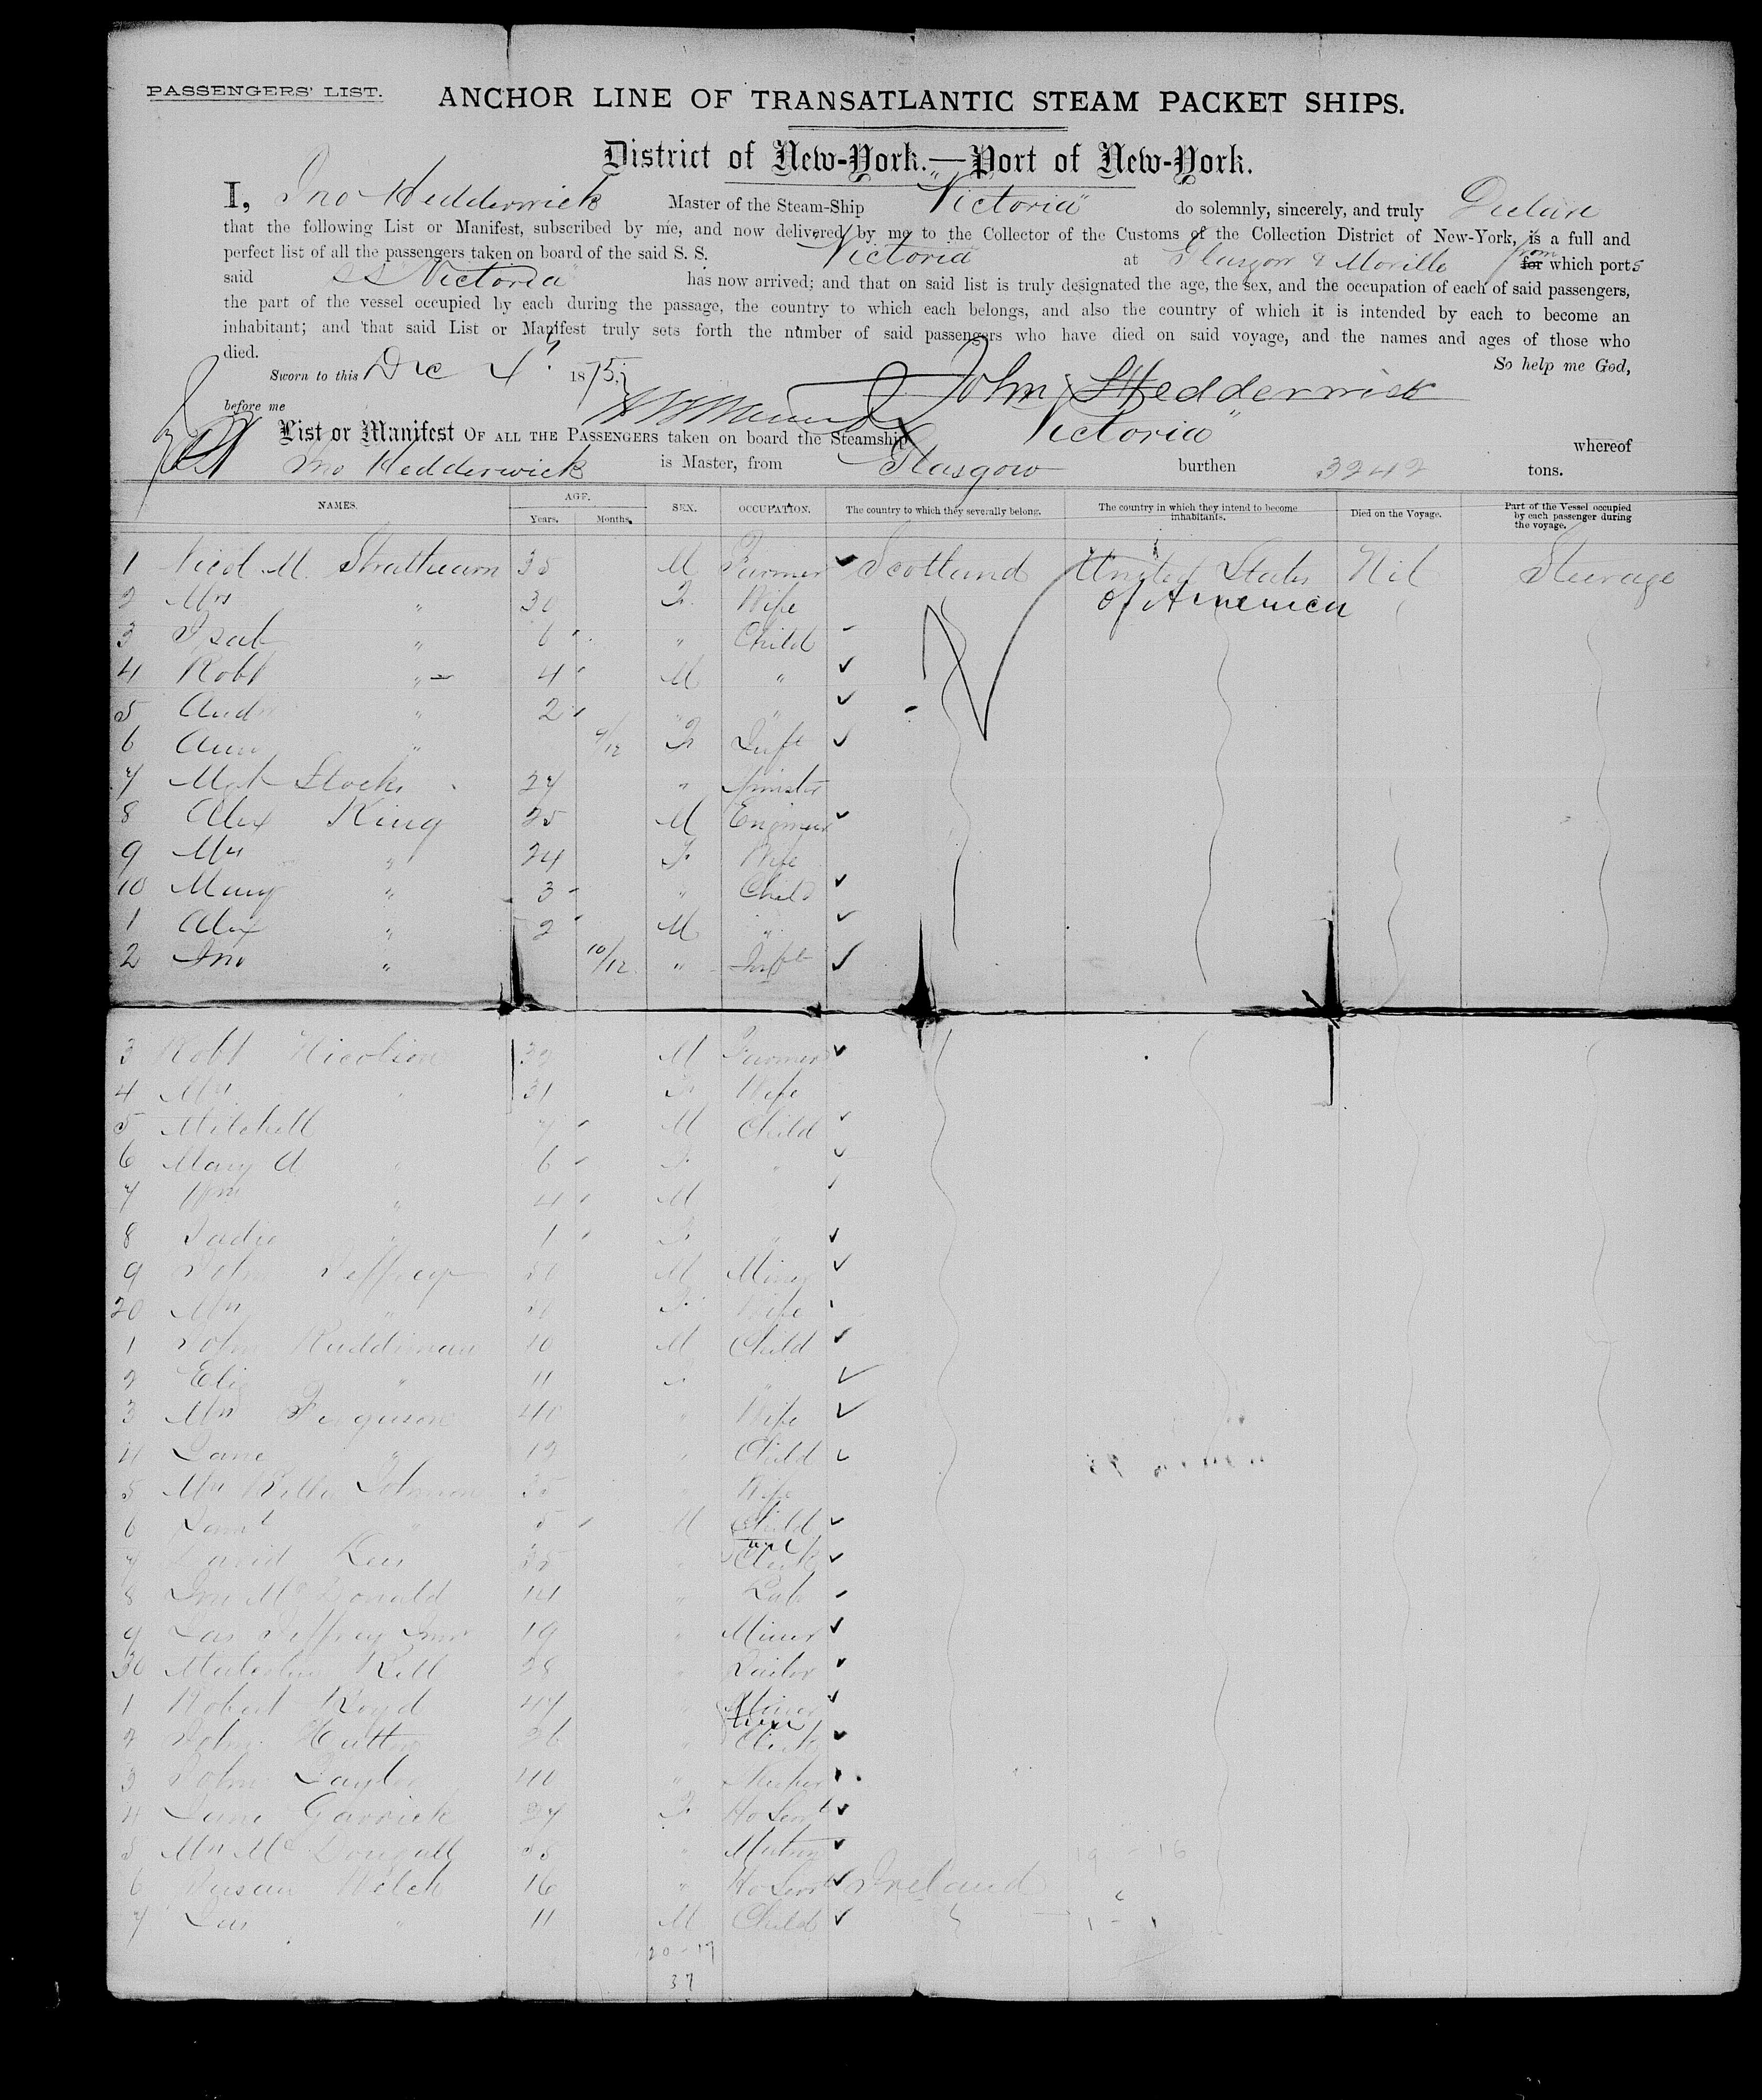 PASSENGERS' LIST.
ANCHOR LINE OF TRANSATLANTIC STEAM PACKET SHIPS.
District of New-York.—Port of New-York.
I, Jno Hedderwick Master of the Steam-Ship "Victoria" do solemnly, sincerely, and truly Declare
that the following List or Manifest, subscribed by me, and now delivered by me to the Collector of the Customs of the Collection District of New-York, is a full and
perfect list of all the passengers taken on board of the said S. S. Victoria at Glasgow & Moville from for which ports
said SS "Victoria" has now arrived; and that on said list is truly designated the age, the sex, and the occupation of each of said passengers,
the part of the vessel occupied by each during the passage, the country to which each belongs, and also the country of which it is intended by each to become an
inhabitant; and that said List or Manifest truly sets forth the number of said passengers who have died on said voyage, and the names and ages of those who
died. So help me God,
Sworn to this Dec 4 1875. John Hedderwick
before me
List or Manifest OF ALL THE PASSENGERS taken on board the Steamship "Victoria" whereof
Jno Hedderwick is Master, from Glasgow burthen 3242 tons.
NAMES. AGE. Years. Months. SEX. OCCUPATION. The country to which they severally belong. The country in which they intend to become inhabitants. Died on the Voyage. Part of the Vessel occupied by each passenger during the voyage.
1 Nicol M. Strathearn 35 M Farmer Scotland United States Nil Steerage
2 Mrs " 30 F. Wife of America
3 Isab " 6 " Child
4 Robt " 4 M "
5 Andw " 2 " "
6 Ann " /12 F Inft
7 Mgt Stocks 27 "
8 Alex King 25 M Engineer
9 Mrs " 24 F. Wife
10 Mary " 3 " Child
1 Alex " 2 M "
2 Jno " 10/12 " Inft
3 Robt Nicolson 32 M Farmer
4 Mrs " 31 F Wife
5 Mitchell 7 M Child
6 Mary A " 6 F. "
7 Wm " 4 M
8 Sadie " 1 F. "
9 John Jeffrey M Miner
20 Mrs " F. Wife
1 John Ruddiman 10 M Child
2 Eliz " 11 "
3 Mrs Ferguson 40 " Wife
4 Jane " 12 " Child
5 Mrs Johnson 35 " Wife
6 Saml " 5 M Child
7 David 35 Clerk
8 Jno McDonald 14 " Lab
9 Jas Jeffrey Jnr 19 " Miner
30 Malcolm 28 " Tailor
1 Robert Boyd 47 " Miner
2 John Hutton 26 " Clerk
3 John Taylor 40 "
4 Jane Garrick 27 F. Ho Servt
5 Mrs McDougall 55 " Matron 19 - 16
6 Susan Welch 16 " Ho Servt Ireland
7 Jas " 11 M Child " 1 - 1
20 - 17
37